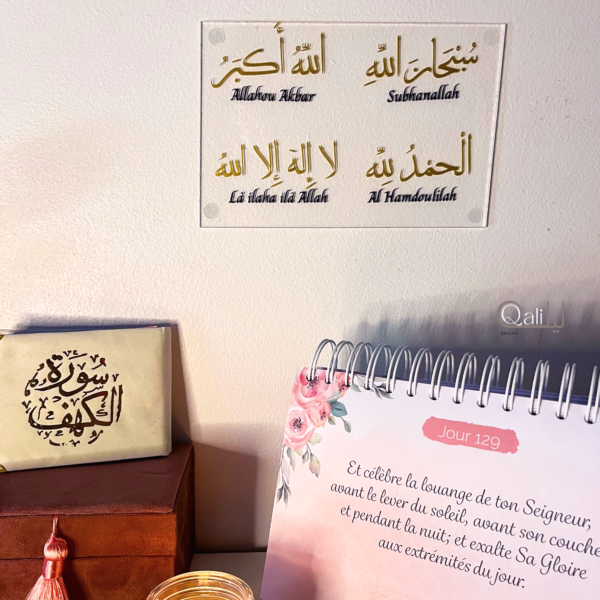 اللّٰهُ أَكبَرُ
سُبْحَانَ اللّٰهِ
Allahou Akbar
Subhanallah
لا إِلهَ إِلا اللهُ
الْحَمْدُ لِلّٰهِ
Lâ ilaha ilâ Allah
Al Hamdoulilah
Qali
سورة
الكهف
Jour 129
Et célèbre la louange de ton Seigneur,
avant le lever du soleil, avant son couche
et pendant la nuit; et exalte Sa Gloire
aux extrémités du jour.